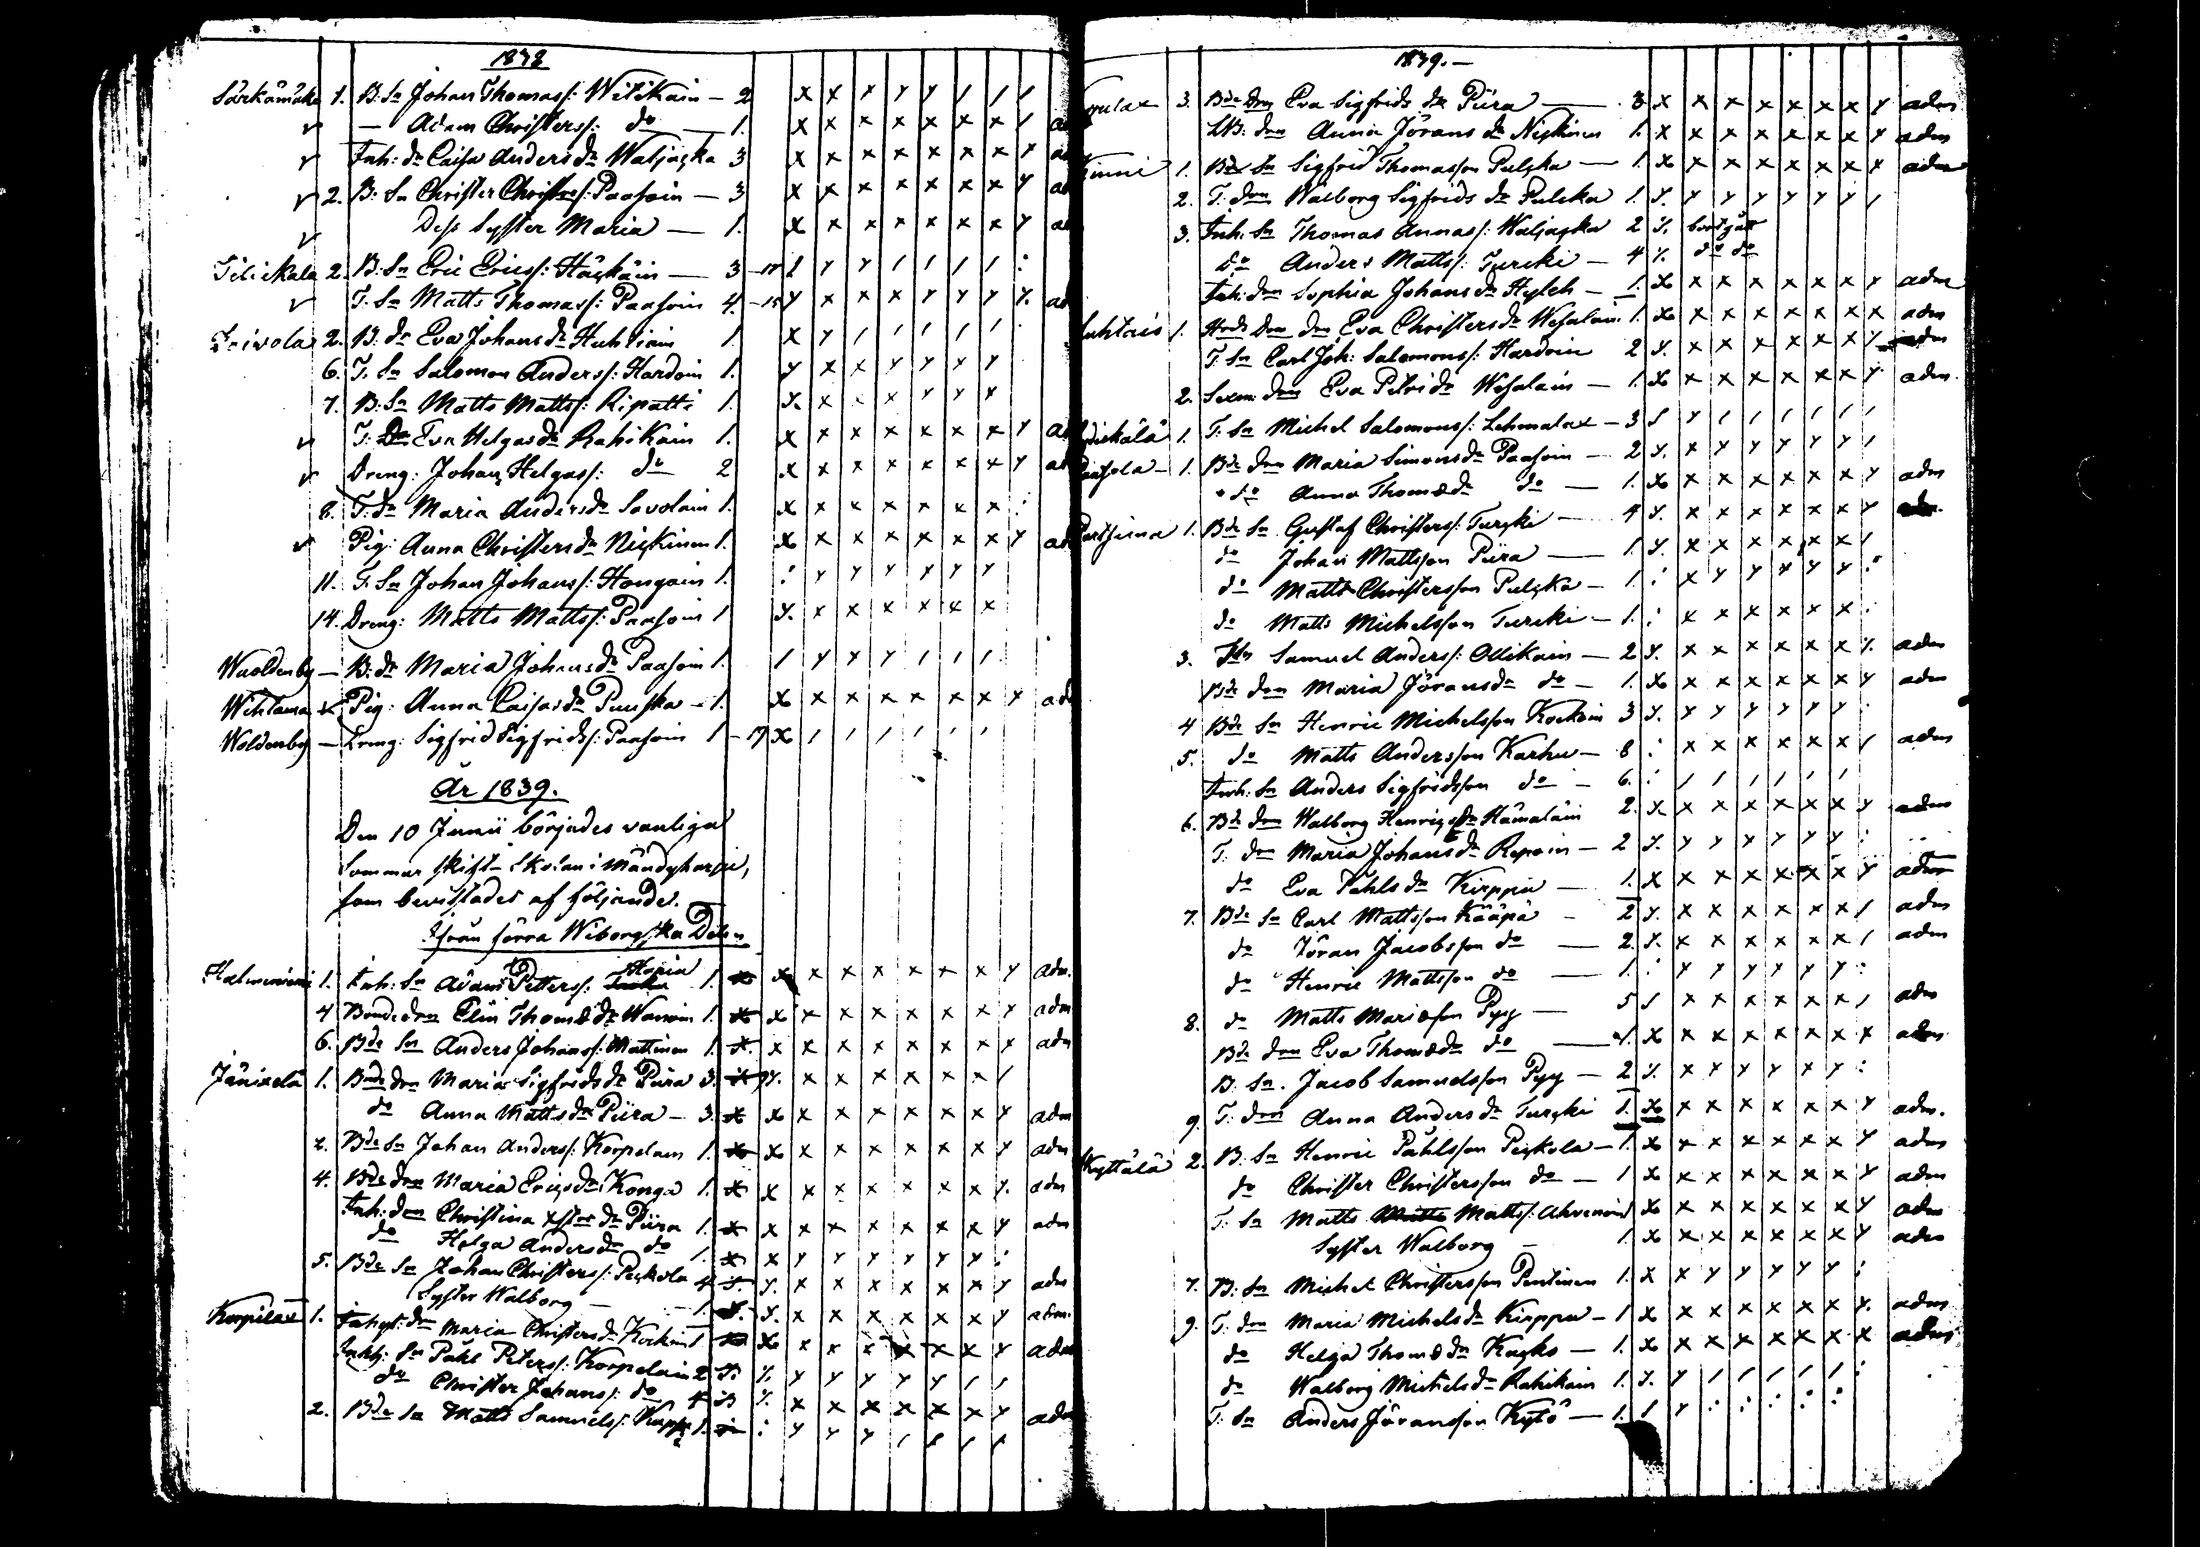 1838
Särkämäki 1. B: Sn Johan Thomass: Witikain — 2 x x x y y / / /
v — Adam Christerss: do — 1. x x x x x x x /
v Inh: dr Caisa Andersdr Waljacka 3 x x x x x x x y
v 2. B: Sn Christer Christerss: Paasoin — 3 x x x x x x x y
v Dess Syster Maria — 1. x x x x x x x y
2. B: Sn Eric Ericss: Häckäin — 3 — 17 / y y / / / / :
v T: Sn Matts Thomass: Paasoin 4. — 15 y x x x y y y y.
Toivola 2. B: dr Eva Johansdr Huhtiain 1. x y / / / / /
6. T: Sn Salomon Anderss: Hardoin 1. y x x y y y y
7. B: Sn Matts Mattss: Ripatti 1. y. x x x y y y
v T: Dr Eva Helgasdr Rahikain 1. x x x x x x x y
v Dreng: Johan Helgass: do 2 x x x x x x x y
8. T: dr Maria Andersdr Savolain 1. x x x x x x x :
v Pig: Anna Christersdr Nickinen 1. x x x x x x x y
11. T: Sn Johan Johanss: Hongain 1. : y y y y y y
14. Dreng: Matts Mattss: Paasoin 1 y. x x x x x x
Wuoldenby — B: dr Maria Johansdr Paasoin 1. / y y y / / /
Wihtama Pig: Anna Caisasdr — 1. x x x x x x x y
Woldenby — Dreng: Sigfrid Sigfridss: Paasoin 1 — 17 x / / / / / /
År 1839.
Den 10 Junii börjades vanliga
Sommar skift-Skolan i Mändyharju,
som bevistades af följande.
Ifrån förra Wiborgska Delen
Halmeniemi 1. Inh: Sn Adam Petterss: 1. x x x x x x x y adm.
4 Bonde drn Elin Thomæ dr 1. x x x x x x x y adm
6. Bde Sn Anders Johanss: Mattinen 1. x x x x x x x x adm
Jänixelä 1. Bde drn Maria Sigfridsdr Püra 3. y. x x x x x x /
do Anna Mattsdr Püra — 3. x x x x x x x y adm
2. Bde Sn Johan Anderss: Korpelain 1. x x x x x x x y adm
4. Bde drn Maria Ericsdr Konga 1. x x x x x x x y. adm
Inh: drn Christina Xsters dr Püra 1. x x x x x x x y adm
do Helga Andersdr do 1. x y y y y y y :
5. Bde Sn Johan Christerss: Peckola 4 y. x x x x x x y adm
Syster Walborg — 1. y. x x x x x x y adm.
Korpilax 1. Inhyt: dr Maria Christersdr Kockoin 1 x x x x x x x y adm
Inh: Sn Pahl Peterss: Korpelain 2 y. y y y y y / /
do Christer Johanss: do 4 y. x x x x x x y adm
2. Bde Sn Matts Samuelss: 1. : y y y / / / /
1839. —
3. Bde Drn Eva Sigfrids dr Püra — 3 x x x x x x x y adm
drn Anna Jörans dr Nickinen 1. x x x x x x x y adm
Kinni 1. Bde Sn Sigfrid Thomasson Pulcka — 1. x x x x x x x y adm
2. T: drn Walborg Sigfrids dr Pulcka 1. y. y y y y y y /
3. Inh: Sn Thomas Annass: Waljacka 2 y. bortgått
do Anders Mattss: Turcki — 4 y. do do
Inh: drn Sophia Johansdr — 1. x x x x x x x y adm
1. drn Eva Christersdr Wesalain 1. x x x x x x x x adm
T: Sn Carl Joh: Salomonss: Hardoin 2 y. x x x x x x y adm
2. Sexm: drn Eva Petri dr Wesalain — 1. x x x x x x x y adm.
1. T: Sn Michel Salomonss: Lehmalax — 3 / y / / / / / /
1. Bde drn Maria Simonsdr Paasoin — 2 y. x y y y y y /
do Anna Thomædr do — 1. x x x x x x x y adm
Partsima 1. Bde Sn Gustaf Christerss: Turcki — 4 y. x x x x x x y
do Johan Mattsson Püra — 1 y. x x x x x x /
do Matts Christersson Pulcka — 1. : x y y y y y :
do Matts Michelsson Turcki — 1. : x x x x x x :
3. Samuel Anderss: Ollikain — 2 y. x x x x x x y. adm
Bde drn Maria Jöransdr do — 1. x x x x x x x y adm
4 Bde Sn Henric Michelsson Kockoin 3 y. y y y y y y :
5. do Matts Andersson Karhu — 8 : x x x x x x / adm
Inh: Sn Anders Sigfridsson do — 6. : / / / / / /
6. Bde drn Walborg Henricsdr Hämäläin 2. y. x x x x x x y adm
T: drn Maria Johansdr Repoin — 2 y. y y y y y y :
do Eva Pahls dr Kirppu — 1. x x x x x x x y adm
7. Bde Sn Carl Mattsson Kääpä — 2 y. x x x x x x / adm
do Jöran Jacobsson do — 2. y. x x x x x x / adm
do Henric Mattsson do — 1. : y y y y y y :
8. do Matts Mariæson Pyy — 5 / x x x x x x / adm
Bde drn Eva Thomædr do — 1. x x x x x x x x adm
B: Sn. Jacob Samuelsson Pyy — 2 y. x y y y y y :
9. T: drn Anna Anders dr Turcki 1. x x x x x x x y adm.
Kyttälä 2. B: Sn Henric Påhlsson Peckola — 1. x x x x x x x y adm
do Christer Christersson do — 1 x x x x x x x y adm
T: Sn Matts Mattss: Ahvenain 1 x x x x x x x y adm
Syster Walborg — 1. x x x x x x x y adm
7. B: Sn Michel Christersson Pentinen 1. x x y y y y y :
9. T: drn Maria Michelsdr Kirppu — 1 x x x x x x x y. adm
do Helga Thomædr — 1. x x x x x x x x adm
do Walborg Michelsdr Rahikain 1. y. y / / / / / :
T: Sn Anders Jöransson Kytö — 1. / y : : : : :